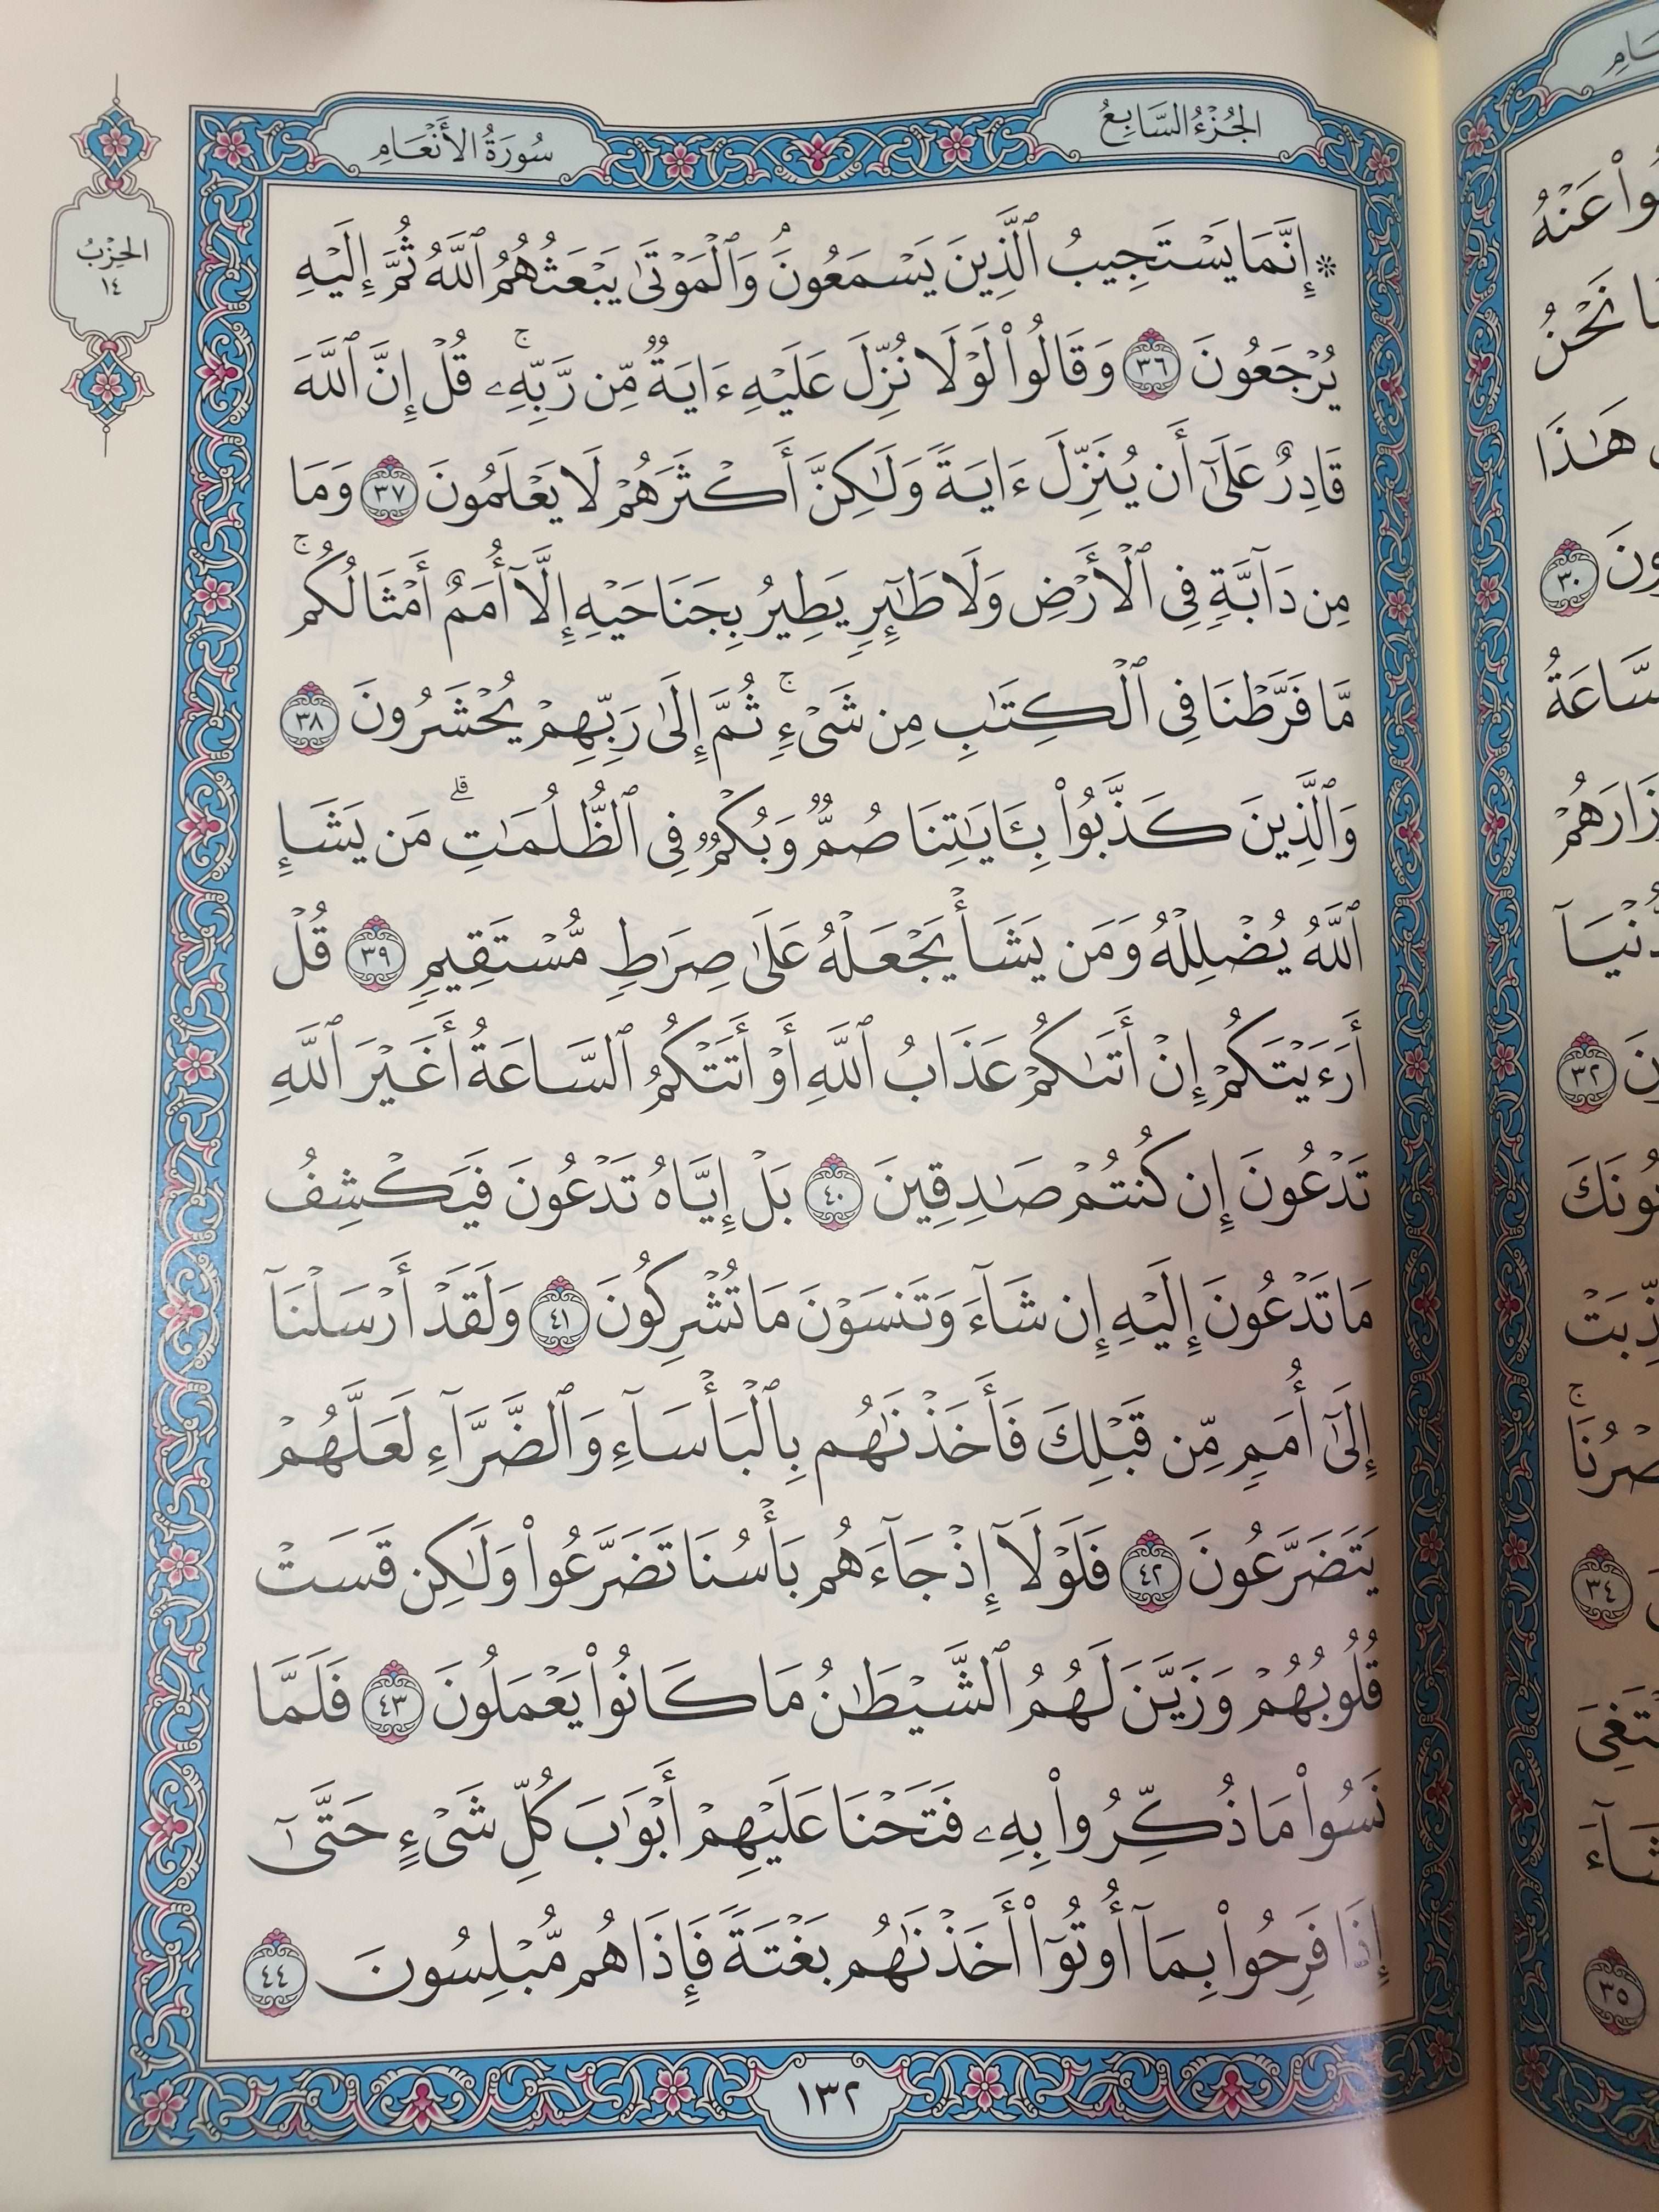 الجُزْءُ السَّابِعُ
سُورَةُ الأَنْعَامِ
الحِزْبُ
١٤
* إِنَّمَا يَسْتَجِيبُ ٱلَّذِينَ يَسْمَعُونَۘ وَٱلْمَوْتَىٰ يَبْعَثُهُمُ ٱللَّهُ ثُمَّ إِلَيْهِ
يُرْجَعُونَ ٣٦ وَقَالُوا۟ لَوْلَا نُزِّلَ عَلَيْهِ ءَايَةٌ مِّن رَّبِّهِۦۚ قُلْ إِنَّ ٱللَّهَ
قَادِرٌ عَلَىٰٓ أَن يُنَزِّلَ ءَايَةً وَلَٰكِنَّ أَكْثَرَهُمْ لَا يَعْلَمُونَ ٣٧ وَمَا
مِن دَآبَّةٍ فِى ٱلْأَرْضِ وَلَا طَٰٓئِرٍ يَطِيرُ بِجَنَاحَيْهِ إِلَّآ أُمَمٌ أَمْثَالُكُمۚ
مَّا فَرَّطْنَا فِى ٱلْكِتَٰبِ مِن شَىْءٍۚ ثُمَّ إِلَىٰ رَبِّهِمْ يُحْشَرُونَ ٣٨
وَٱلَّذِينَ كَذَّبُوا۟ بِـَٔايَٰتِنَا صُمٌّ وَبُكْمٌ فِى ٱلظُّلُمَٰتِۗ مَن يَشَإِ
ٱللَّهُ يُضْلِلْهُ وَمَن يَشَأْ يَجْعَلْهُ عَلَىٰ صِرَٰطٍ مُّسْتَقِيمٍ ٣٩ قُلْ
أَرَءَيْتَكُمْ إِنْ أَتَىٰكُمْ عَذَابُ ٱللَّهِ أَوْ أَتَتْكُمُ ٱلسَّاعَةُ أَغَيْرَ ٱللَّهِ
تَدْعُونَ إِن كُنتُمْ صَٰدِقِينَ ٤٠ بَلْ إِيَّاهُ تَدْعُونَ فَيَكْشِفُ
مَا تَدْعُونَ إِلَيْهِ إِن شَآءَ وَتَنسَوْنَ مَا تُشْرِكُونَ ٤١ وَلَقَدْ أَرْسَلْنَآ
إِلَىٰٓ أُمَمٍ مِّن قَبْلِكَ فَأَخَذْنَٰهُم بِٱلْبَأْسَآءِ وَٱلضَّرَّآءِ لَعَلَّهُمْ
يَتَضَرَّعُونَ ٤٢ فَلَوْلَآ إِذْ جَآءَهُم بَأْسُنَا تَضَرَّعُوا۟ وَلَٰكِن قَسَتْ
قُلُوبُهُمْ وَزَيَّنَ لَهُمُ ٱلشَّيْطَٰنُ مَا كَانُوا۟ يَعْمَلُونَ ٤٣ فَلَمَّا
نَسُوا۟ مَا ذُكِّرُوا۟ بِهِۦ فَتَحْنَا عَلَيْهِمْ أَبْوَٰبَ كُلِّ شَىْءٍ حَتَّىٰٓ
إِذَا فَرِحُوا۟ بِمَآ أُوتُوٓا۟ أَخَذْنَٰهُم بَغْتَةً فَإِذَا هُم مُّبْلِسُونَ ٤٤
١٣٢
عَنْهُ
نَحْنُ
هَٰذَا
٣٠
٣٢
٣٤
٣٥